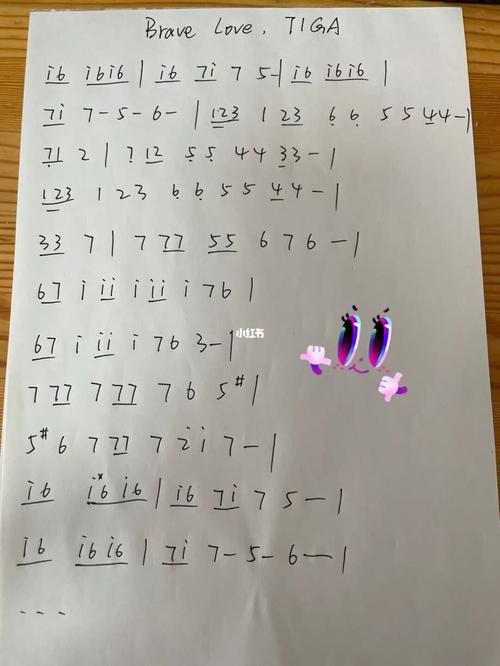 Brave Love, TIGA
i6 i6i6 | i6 7i 7 5-| i6 i6i6 |
7i 7-5-6- | 123 1 23 6 6 5 5 44-|
71 2 | 7 12 5 5 4 4 33-|
123 1 2 3 6 6 5 5 4 4 -|
33 7 | 7 77 55 6 7 6 -|
67 i ii i ii i 7 6 |
小红书
67 i ii i 7 6 3-|
7 77 7 77 7 6 5# |
5# 6 7 77 7 2 i 7 -|
i6 i*6 i6 | i6 7i 7 5 -|
i6 i6 i6 | 7i 7-5-6-|
---